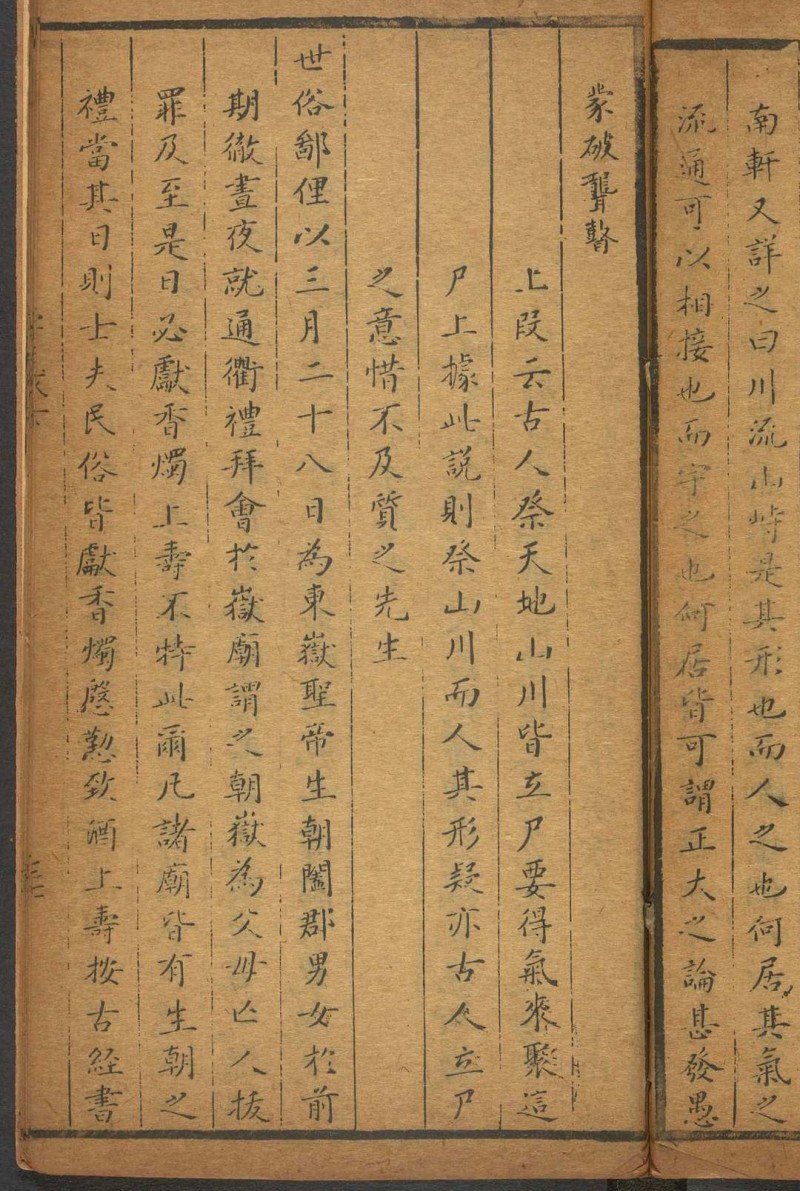 南軒又詳之曰川流山峙是其形也而人之也何居其氣之
流通可以相接也而宇之也何居皆可謂正大之論甚發愚
蒙破聾瞽
上段云古人祭天地山川皆立尸要得氣來聚這
尸上據此說則祭山川而人其形疑亦古人立尸
之意惜不及質之先生
世俗鄙俚以三月二十八日為東嶽聖帝生朝闔郡男女於前
期徹晝夜就通衢禮拜會於嶽廟謂之朝嶽為父母亡人拔
罪及至是日必獻香燭上壽不特此爾凡諸廟皆有生朝之
禮當其日則士夫民俗皆獻香燭慇懃致酒上壽按古經書